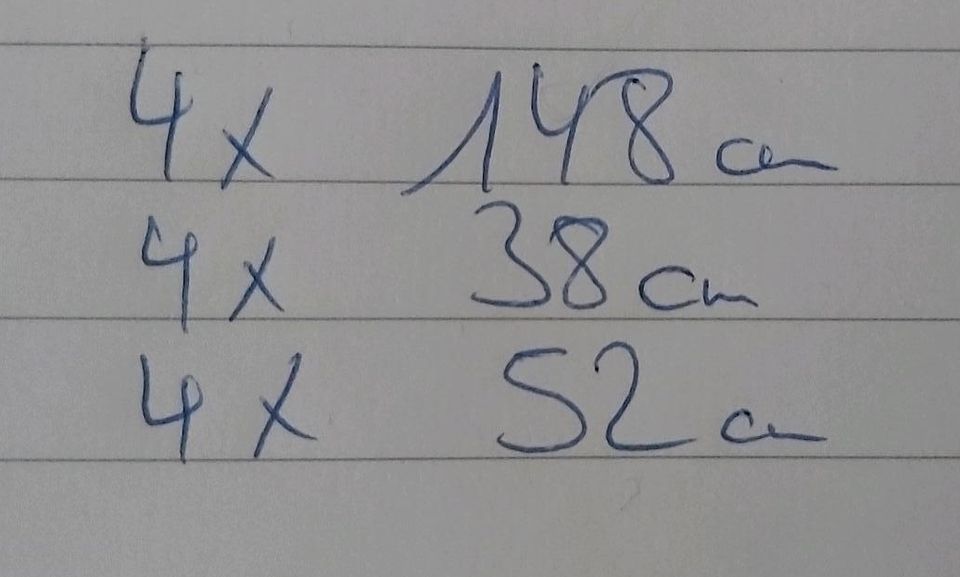 4 x 148 cm
4 x 38 cm
4 x 52 cm